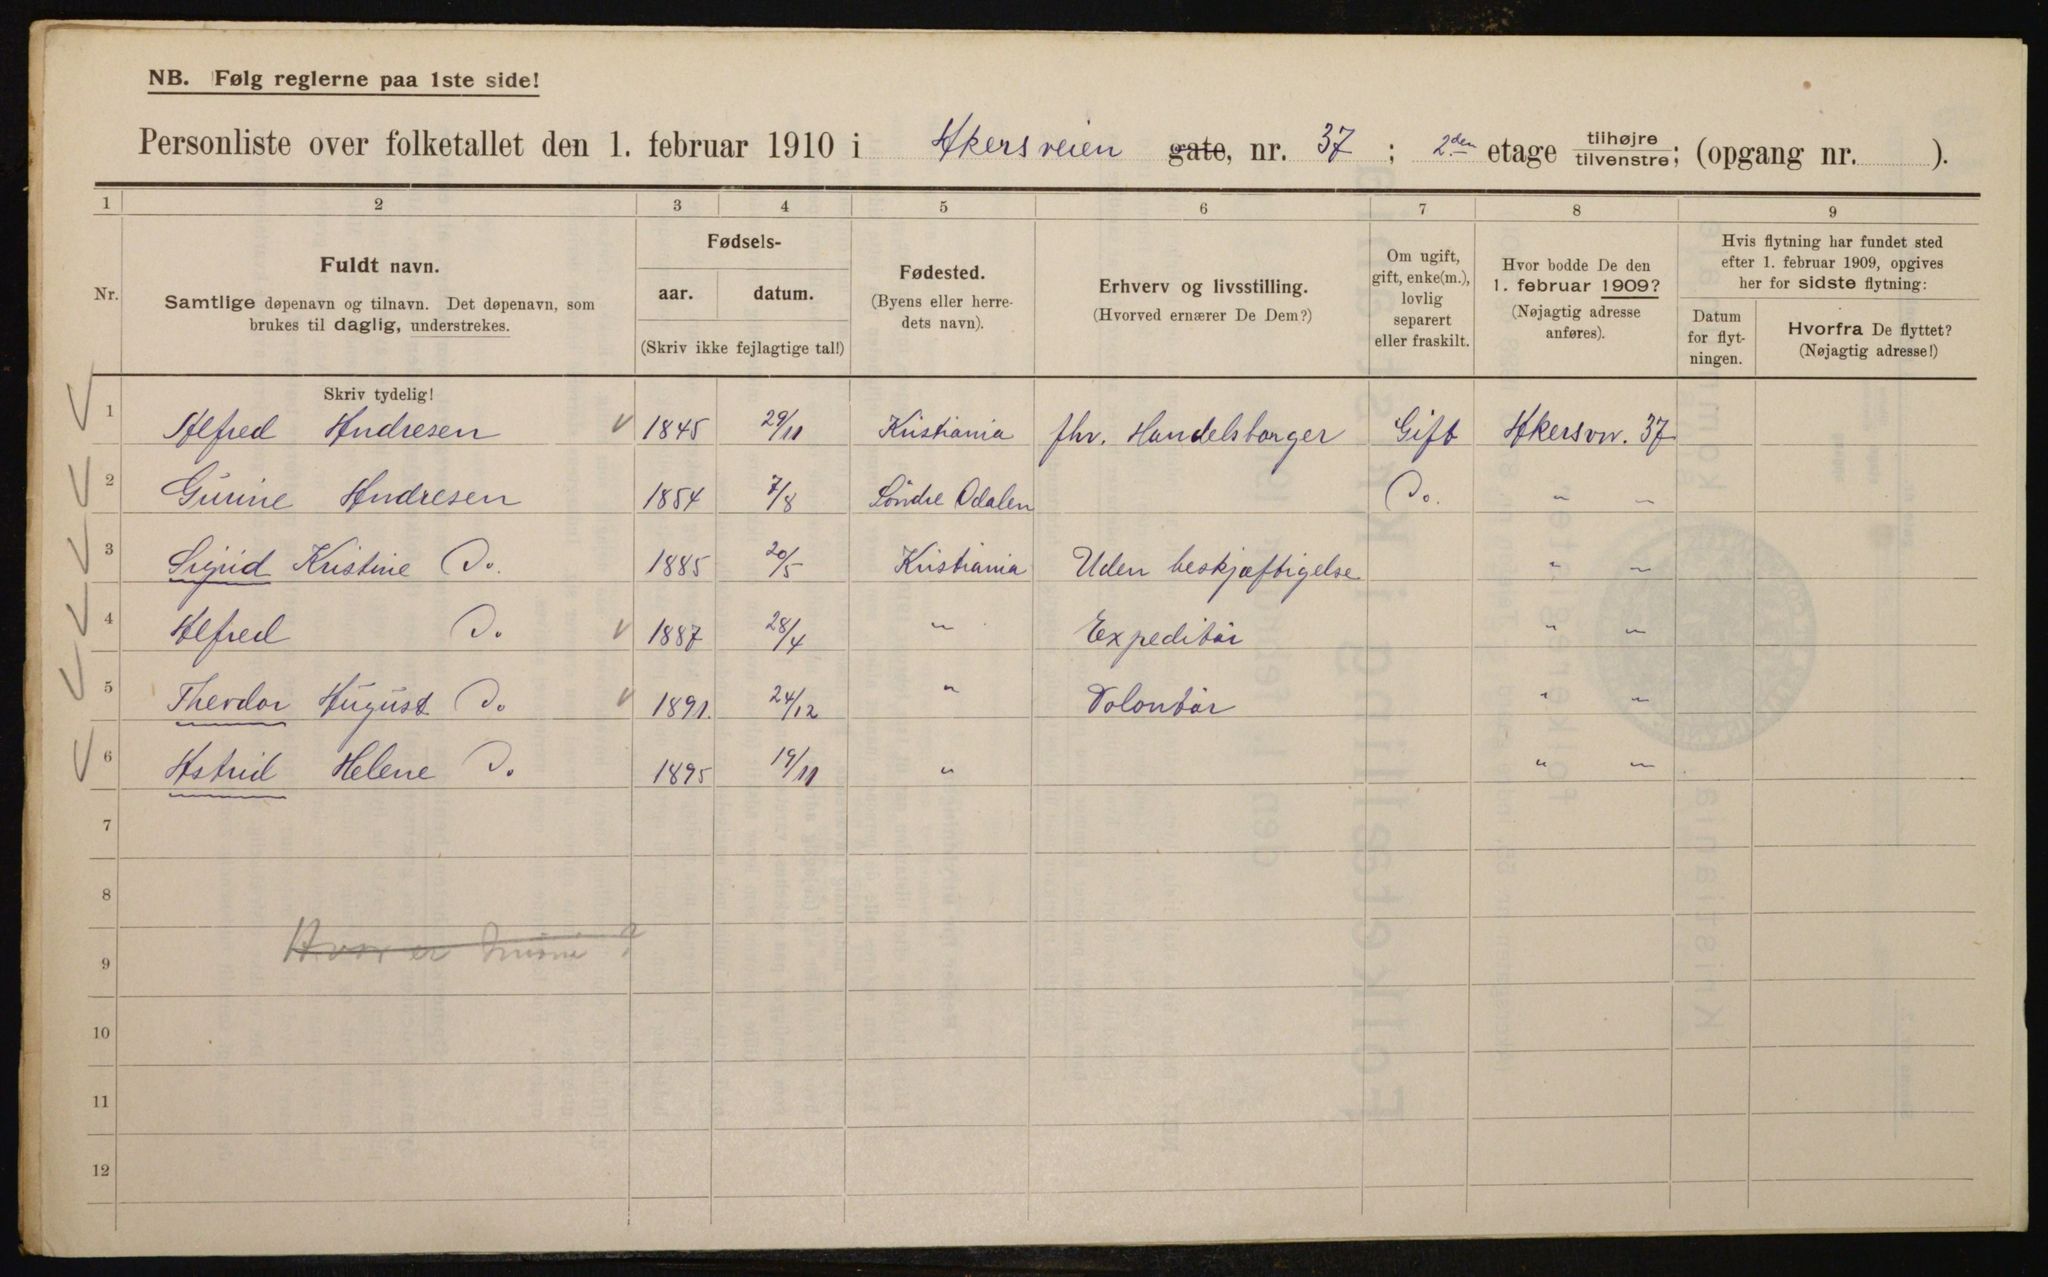 NB. Følg reglerne paa 1ste side!
Personliste over folketallet den 1. februar 1910 i Akersveien gate, nr. 37 ; 2den etage tilhøjre tilvenstre; (opgang nr. ).
1 2 3 4 5 6 7 8 9
Nr.
Fuldt navn.
Samtlige døpenavn og tilnavn. Det døpenavn, som
brukes til daglig, understrekes.
Fødsels-
aar. datum.
(Skriv ikke fejlagtige tal!)
Fødested.
(Byens eller herre-
dets navn).
Erhverv og livsstilling.
(Hvorved ernærer De Dem?)
Om ugift,
gift, enke(m.),
lovlig
separert
eller fraskilt.
Hvor bodde De den
1. februar 1909?
(Nøjagtig adresse
anføres).
Hvis flytning har fundet sted
efter 1. februar 1909, opgives
her for sidste flytning:
Datum
for flyt-
ningen.
Hvorfra De flyttet?
(Nøjagtig adresse!)
Skriv tydelig!
1 Alfred Andresen 1845 29/11 Kristiania fhv. Handelsborger Gift Akersvn. 37
2 Gurine Andresen 1854 7/8 Söndre Odalen Do. " "
3 Sigrid Kristine Do. 1885 20/5 Kristiania Uden beskjæftigelse " "
4 Alfred Do 1887 28/4 " Expeditör " "
5 Theodor August Do 1891. 24/12 " Volontör " "
6 Astrid Helene Do 1895 19/11 " " "
7
8
9 Hvor er ?
10
11
12